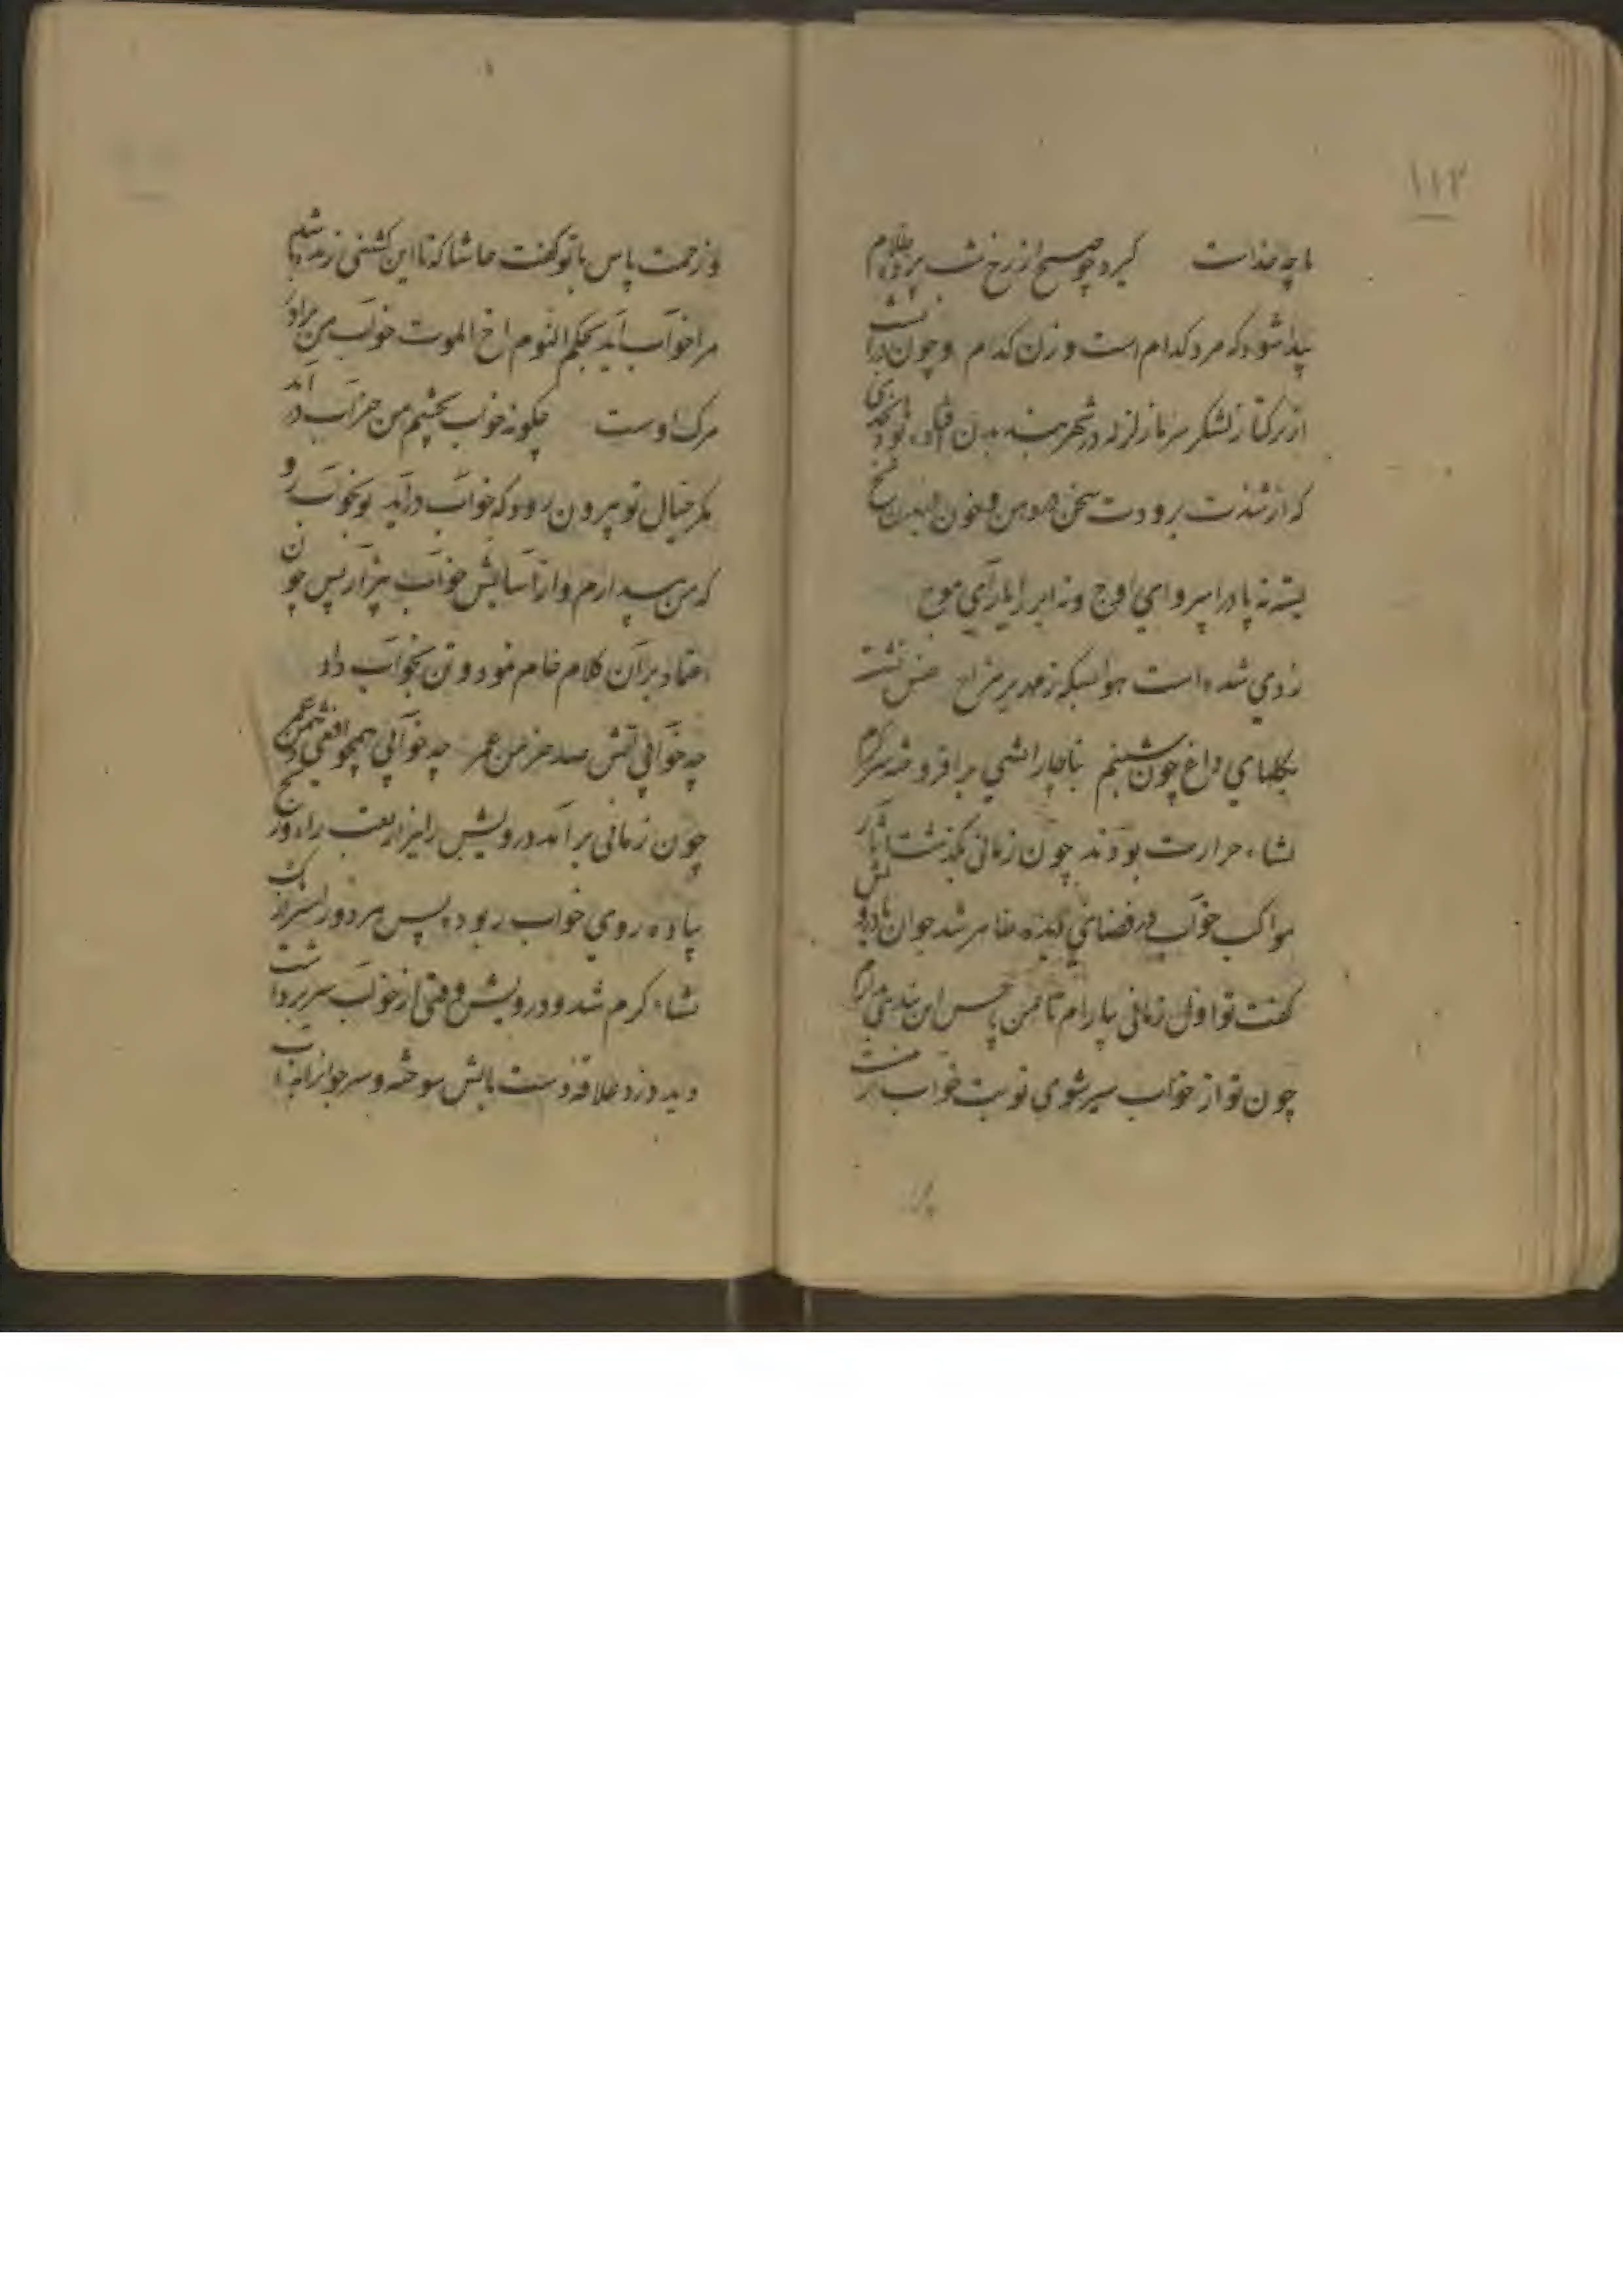 ۱۱۲
با چه خداست گیرد چو صبح از رخ شب پرده ظلام
پیدا شود که مرد کدام است و زن کدام و چون در آن شب
از ترکتاز لشکر سرما زلزله در شهر بند بدن افتاده بود بحدی
که از شدت برودت سخن در دهن و خون در بدن یخ
بسته نه باد را پروای اوج و نه ابر را یارای موج
شده است هوا بسکه زمهریر مزاج
بگلهای داغ چون شبنم بناچار آتشی برافروخته سرگرم
نشاء حرارت بودند چون زمانی بگذشت آثار
مواکب خواب در فضای دیده ظاهر شد جوان با درویش
گفت تو اول زمانی بیارام تا من پاس این بندی میدارم
چون تو از خواب سیر شوی نوبت خواب از منست
و زحمت پاس با تو گفت حاشا که تا این کشتنی زنده باشد
مرا خواب آید بحکم النوم اخ الموت خواب من برادر
مرک اوست چگونه خواب بچشم من خراب درآید
مگر خیال تو بیرون رود که خواب درآید تو بخواب رو
که من بیدارم و از آسایش خواب بیزار پس چون
اعتماد بر آن کلام خام نمود و تن بخواب داد
چه خوابی آتش صد خرمن عمر چه خوابی همچو افعی دشمن عمر
چون زمانی برآمد درویش را نیز از تعب راه و رنج
پیاده روی خواب ربوده پس هر دو را سر از یک
نشاء گرم شد و درویش وقتی از خواب سر برداشت
دید دزد علاقه دست بآتش سوخته و سر جوانرا